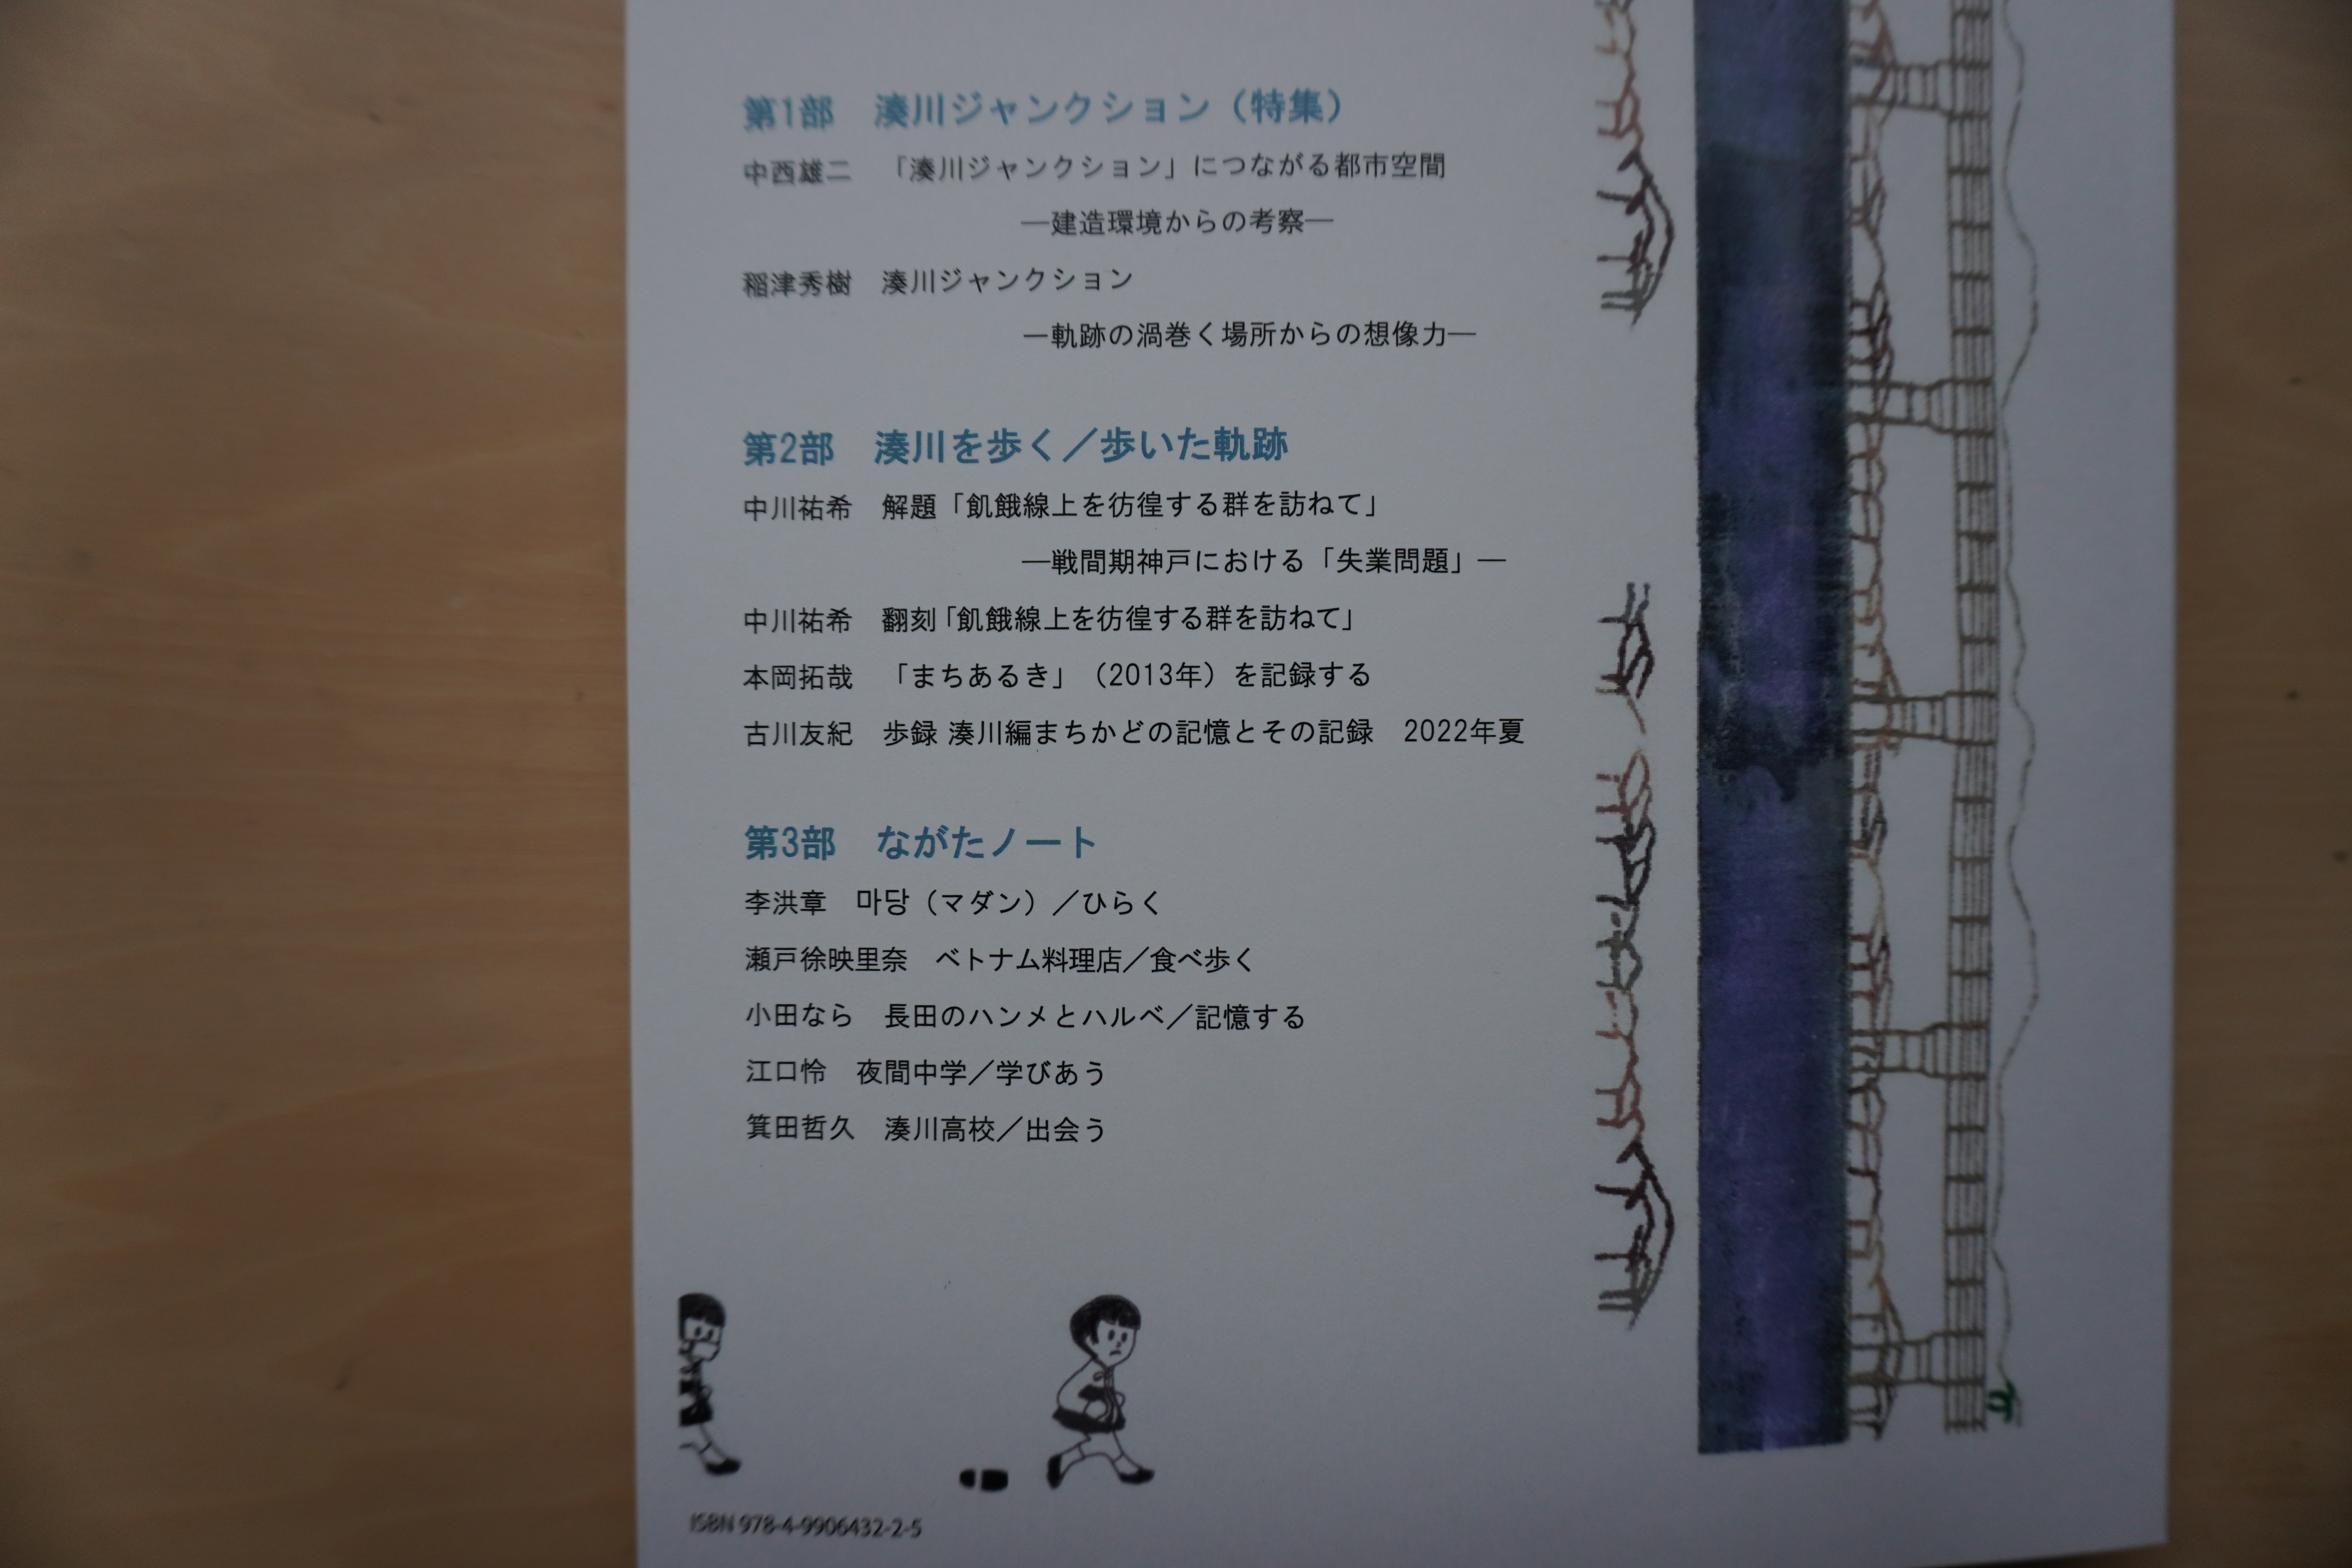 第1部　湊川ジャンクション（特集）
中西雄二　「湊川ジャンクション」につながる都市空間
―建造環境からの考察―
稲津秀樹　湊川ジャンクション
―軌跡の渦巻く場所からの想像力―
第2部　湊川を歩く／歩いた軌跡
中川祐希　解題「飢餓線上を彷徨する群を訪ねて」
―戦間期神戸における「失業問題」―
中川祐希　翻刻「飢餓線上を彷徨する群を訪ねて」
本岡拓哉　「まちあるき」（2013年）を記録する
古川友紀　歩録 湊川編まちかどの記憶とその記録　2022年夏
第3部　ながたノート
李洪章　마당（マダン）／ひらく
瀬戸徐映里奈　ベトナム料理店／食べ歩く
小田なら　長田のハンメとハルベ／記憶する
江口怜　夜間中学／学びあう
箕田哲久　湊川高校／出会う
ISBN 978-4-9906432-2-5